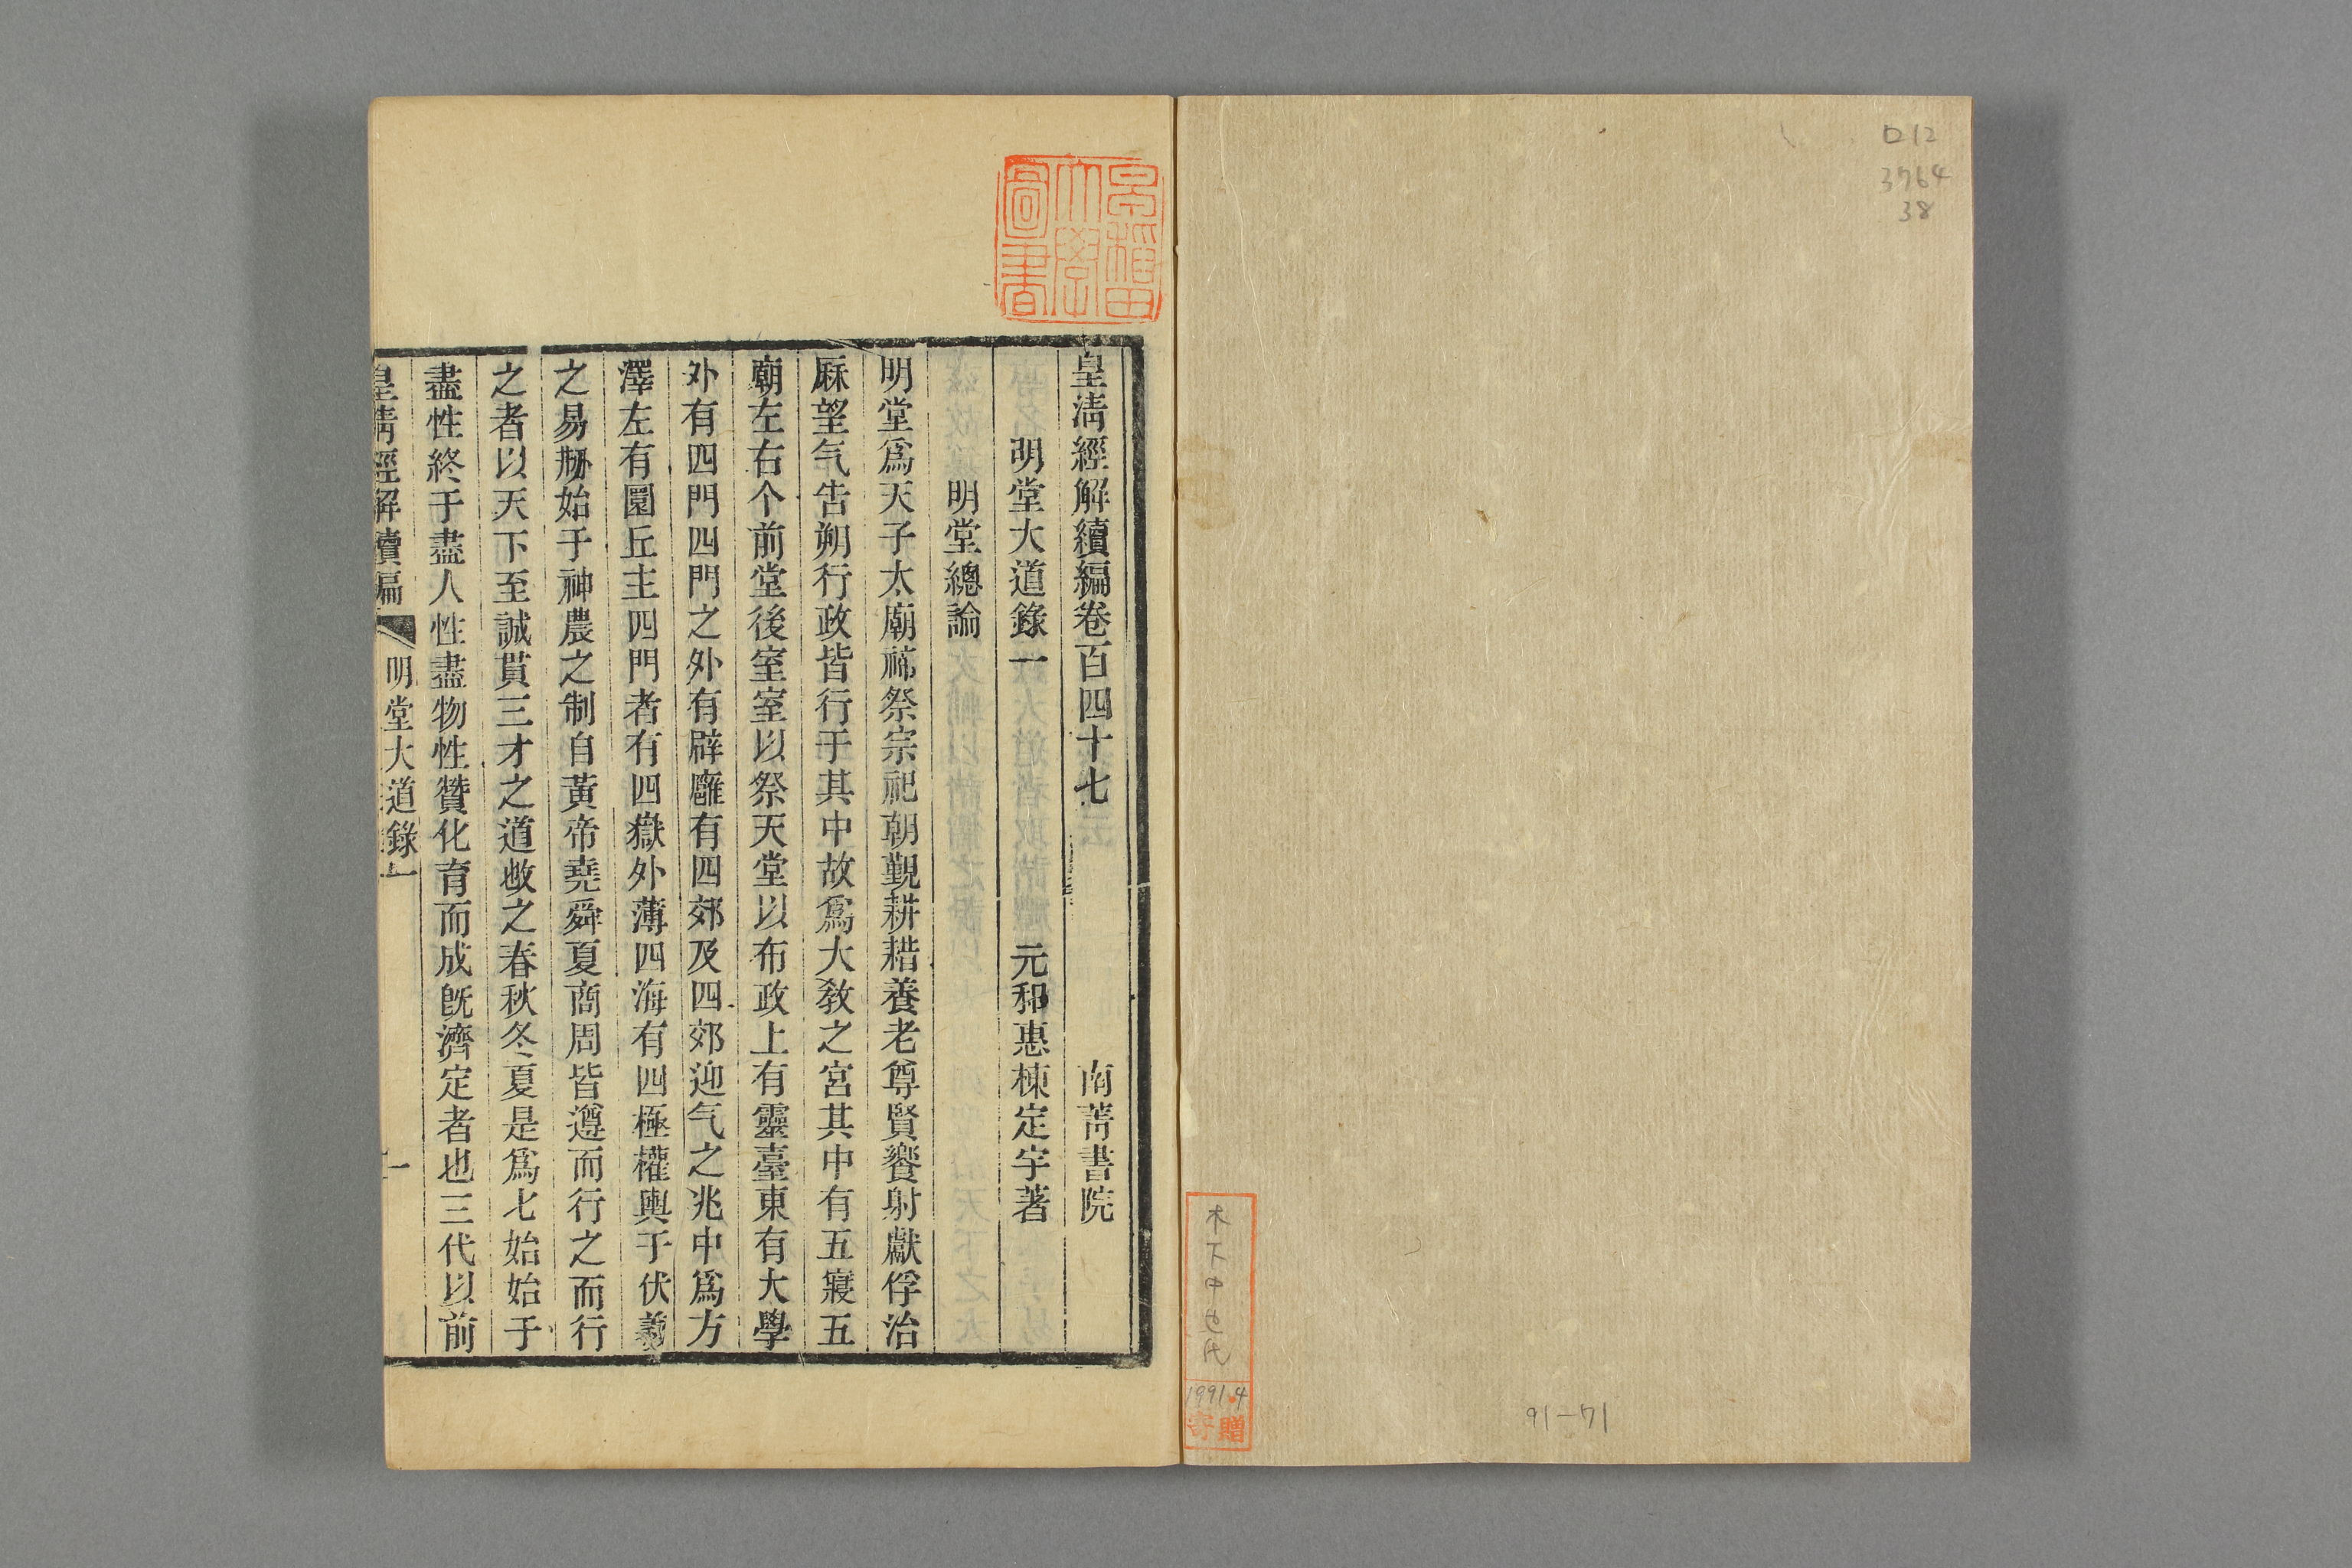 口12
3764
38
木下中也氏
1991.4
寄贈
91-71
早稲田大學圖書
皇清經解續編卷百四十七 南菁書院
明堂大道錄一 元和惠棟定宇著
明堂總論
明堂爲天子太廟禘祭宗祀朝覲耕耤養老尊賢饗射獻俘治
厤望气告朔行政皆行于其中故爲大敎之宮其中有五寢五
廟左右个前堂後室室以祭天堂以布政上有靈臺東有大學
外有四門四門之外有辟廱有四郊及四郊迎气之兆中爲方
澤左有圜丘主四門者有四嶽外薄四海有四極權輿于伏羲
之易剏始于神農之制自黃帝堯舜夏商周皆遵而行之而行
之者以天下至誠貫三才之道敚之春秋冬夏是爲七始始于
盡性終于盡人性盡物性贊化育而成旣濟定者也三代以前
皇清經解續編 明堂大道錄一 一